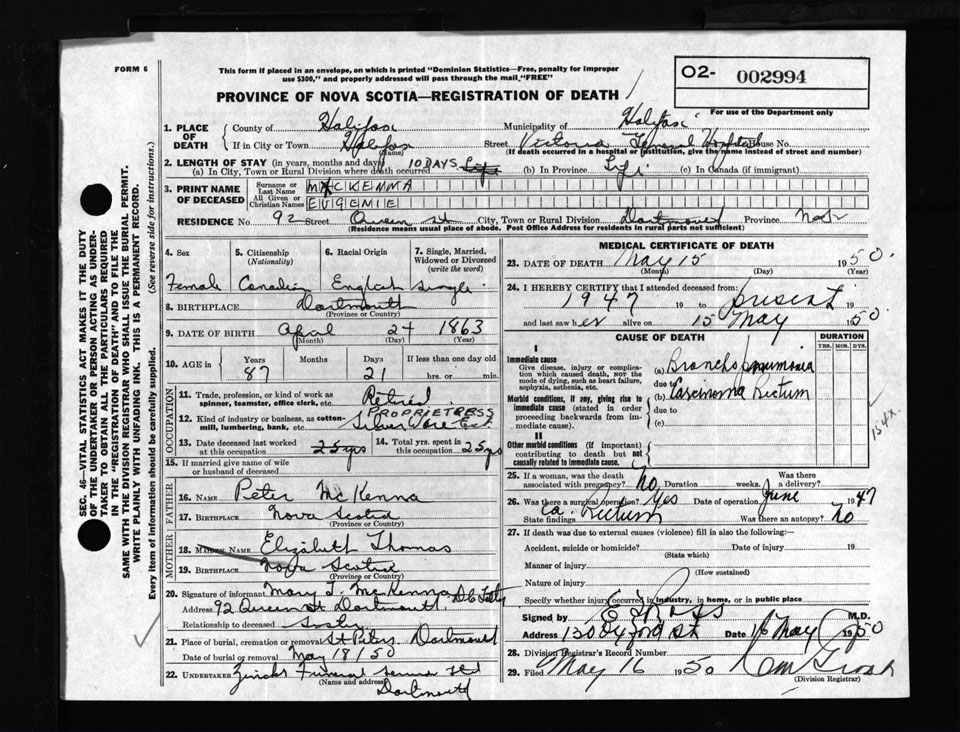 FORM 6
This form if placed in an envelope, on which is printed "Dominion Statistics—Free, penalty for improper
use $300," and properly addressed will pass through the mail "FREE"
O2- 002994
For use of the Department only
PROVINCE OF NOVA SCOTIA—REGISTRATION OF DEATH
SEC. 46—VITAL STATISTICS ACT MAKES IT THE DUTY
OF THE UNDERTAKER OR PERSON ACTING AS UNDER-
TAKER TO OBTAIN ALL THE PARTICULARS REQUIRED
IN THE "REGISTRATION OF DEATH" AND TO FILE THE
SAME WITH THE DIVISION REGISTRAR WHO SHALL ISSUE THE BURIAL PERMIT.
WRITE PLAINLY WITH UNFADING INK. THIS IS A PERMANENT RECORD.
Every item of information should be carefully supplied. (See reverse side for instructions.)
1. PLACE OF DEATH County of Halifax Municipality of Halifax
If in City or Town Halifax (Name) Street Victoria General Hospital House No.
(If death occurred in a hospital or institution, give the name instead of street and number)
2. LENGTH OF STAY (in years, months and days)
(a) In City, Town or Rural Division where death occurred 10 DAYS (b) In Province Life (c) In Canada (if immigrant)
3. PRINT NAME OF DECEASED Surname or Last Name McKENNA
All Given or Christian Names EUGENIE
RESIDENCE No. 92 Street Queen st City, Town or Rural Division Dartmouth Province N.S.
(Residence means usual place of abode. Post Office Address for residents in rural parts not sufficient)
4. Sex 5. Citizenship (Nationality) 6. Racial Origin 7. Single, Married, Widowed or Divorced (write the word)
Female Canadian English Single
8. BIRTHPLACE Dartmouth
(Province or Country)
9. DATE OF BIRTH April 24 1863
(Month) (Day) (Year)
10. AGE in Years Months Days If less than one day old
87 21 hrs. or min.
OCCUPATION
11. Trade, profession, or kind of work as spinner, teamster, office clerk, etc. Retired
12. Kind of industry or business, as cotton-mill, lumbering, bank, etc. PROPRIETRESS
13. Date deceased last worked at this occupation 25 yrs 14. Total yrs. spent in this occupation 25 yrs
15. If married give name of wife or husband of deceased
FATHER
16. NAME Peter McKenna
17. BIRTHPLACE Nova Scotia
(Province or Country)
MOTHER
18. MAIDEN NAME Elizabeth Thomas
19. BIRTHPLACE Nova Scotia
(Province or Country)
20. Signature of informant Mary J. McKenna
Address 92 Queen st Dartmouth
Relationship to deceased Sister
21. Place of burial, cremation or removal St Peters Dartmouth
Date of burial or removal May 18/50
22. UNDERTAKER Funeral Service Ltd
(Name and address) Dartmouth
MEDICAL CERTIFICATE OF DEATH
23. DATE OF DEATH May 15 1950.
(Month) (Day) (Year)
24. I HEREBY CERTIFY that I attended deceased from:
1947 19 to present 19
and last saw her alive on 15 May 1950.
CAUSE OF DEATH DURATION
YRS. MOS. DYS.
I
Immediate cause
Give disease, injury or complication which caused death, not the mode of dying, such as heart failure, asphyxia, asthenia, etc.
(a) Bronchopneumonia
due to
Morbid conditions, if any, giving rise to immediate cause (stated in order proceeding backwards from immediate cause)
(b) Carcinoma Rectum
due to
(c)
154X.
II
Other morbid conditions (if important) contributing to death but not causally related to immediate cause.
25. If a woman, was the death associated with pregnancy? No Duration weeks. Was there a delivery?
26. Was there a surgical operation? Yes Date of operation June 1947
State findings Ca. Rectum Was there an autopsy? No
27. If death was due to external causes (violence) fill in also the following:—
Accident, suicide or homicide? Date of injury 19
(State which)
Manner of injury
(How sustained)
Nature of injury
Specify whether injury occurred in industry, in home, or in public place
Signed by E F Ross M.D.
Address 130 Oxford St Date 16 May 1950
28. Division Registrar's Record Number
29. Filed May 16 1950
(Division Registrar)